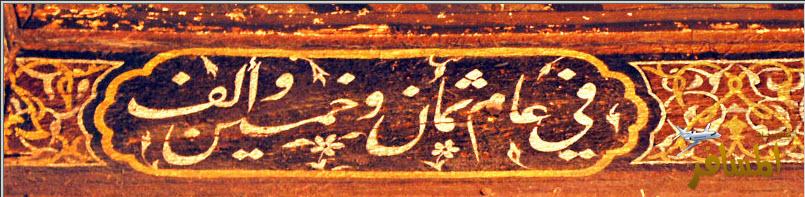 في عام ثمان وخمسين وألف
المسافر